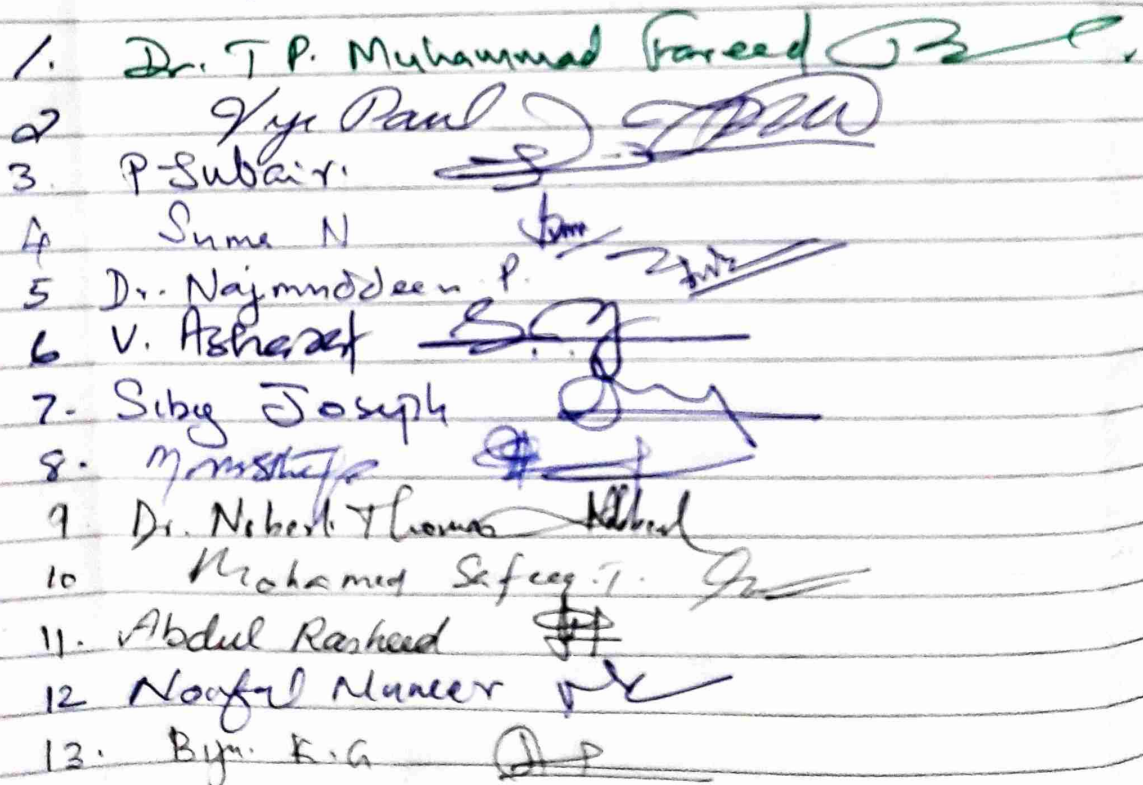 1. Dr. T P. Muhammad Fareed
2 Paul
3. P Subair.
4 Suma N
5 Dr. Najmuddeen P.
6 V. Ashraf
7. Siby Joseph
8.
9 Dr. Nobert Thomas
10 Mohamed Safeeq. T.
11. Abdul Rasheed
12 Noufal Muneer
13. K. G